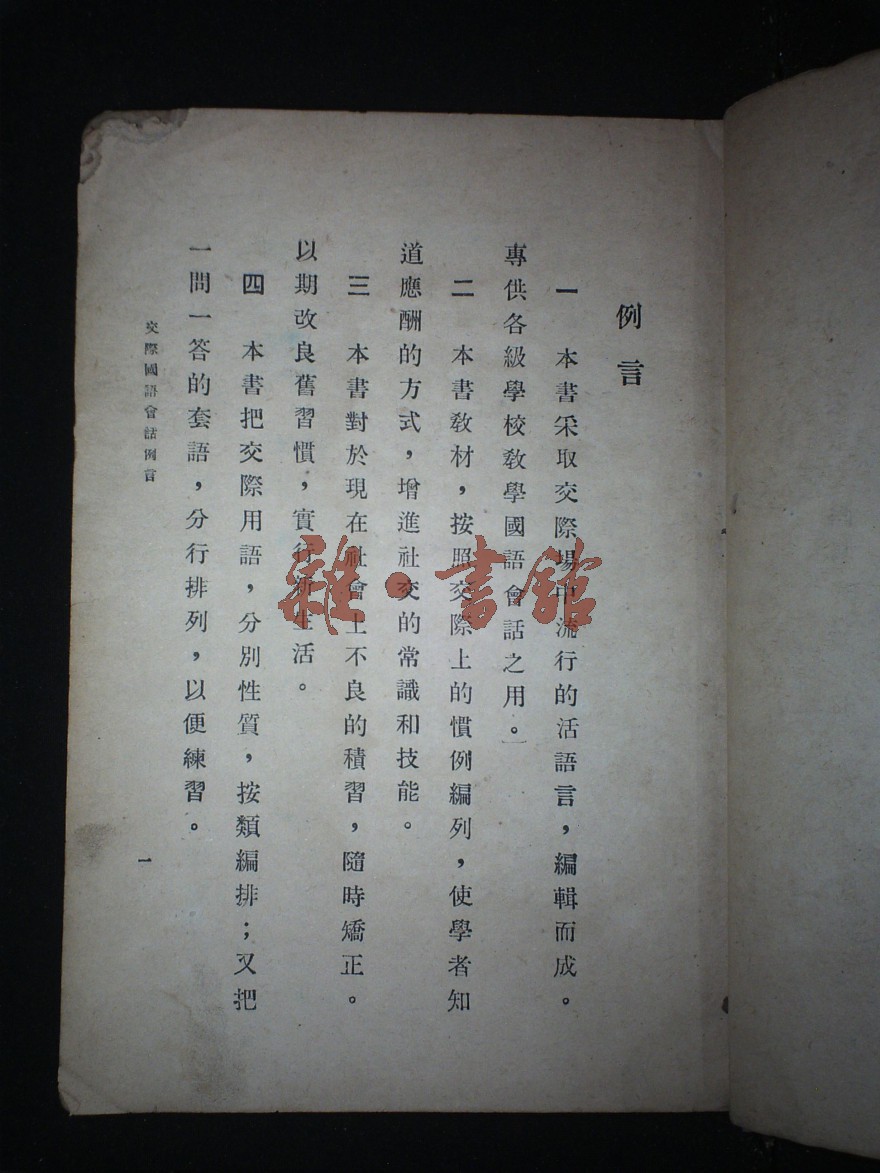 例言
一 本書采取交際場中流行的活語言，編輯而成。
專供各級學校教學國語會話之用。
二 本書教材，按照交際上的慣例編列，使學者知
道應酬的方式，增進社交的常識和技能。
三 本書對於現在社會上不良的積習，隨時矯正。
以期改良舊習慣，實行新生活。
四 本書把交際用語，分別性質，按類編排；又把
一問一答的套語，分行排列，以便練習。
交際國語會話例言
一
雜·書館